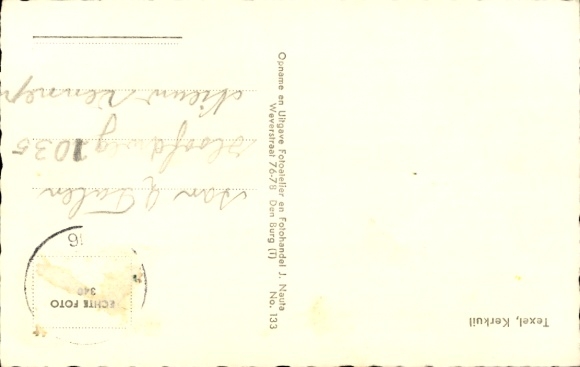 Texel, Kerkuil
Opname en Uitgave Fotoatelier en Fotohandel J. Nauta
Weverstraat 76-78 Den Burg (T) No. 133
ECHTE FOTO
340
16
Hoofdweg 1035
Nieuw Vennep